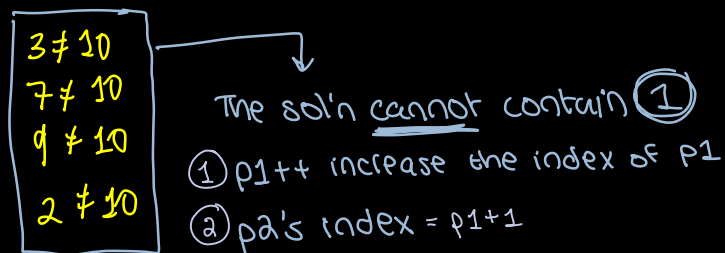 3 ≠ 10
7 ≠ 10
9 ≠ 10
2 ≠ 10
The sol'n cannot contain 1
1 p1++ increase the index of p1
2 p2's index = p1+1